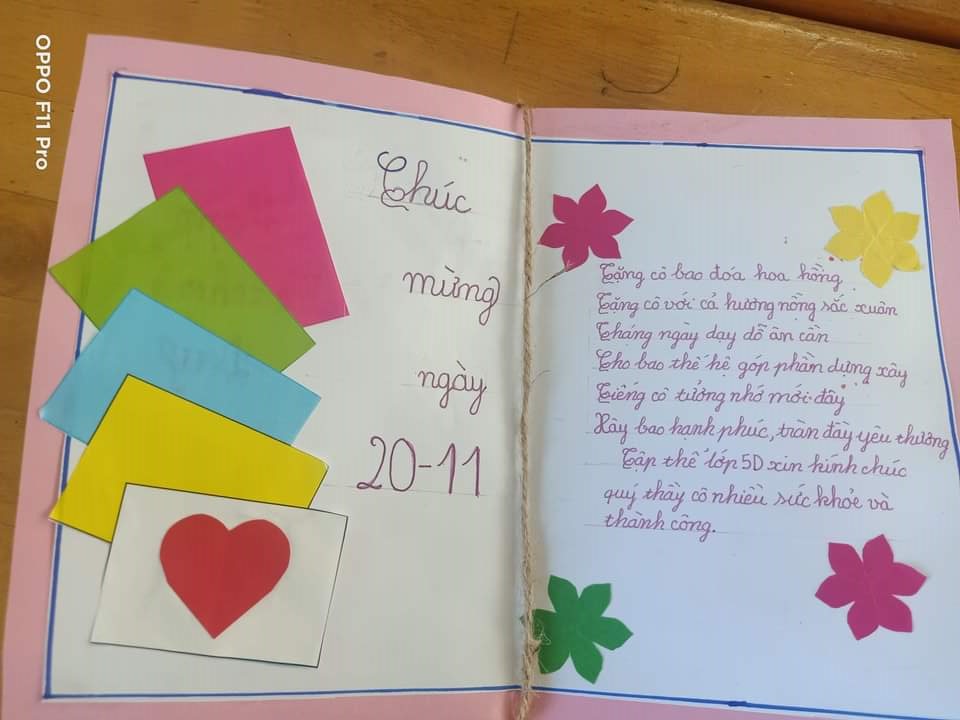 OPPO F11 Pro
Chúc
mừng
ngày
20-11
Tặng cô bao đóa hoa hồng
Tặng cô với cả hương nồng sắc xuân
Tháng ngày dạy dỗ ân cần
Cho bao thế hệ góp phần dựng xây
Tiếng cô tưởng nhớ mới đây
Xây bao hạnh phúc, tràn đầy yêu thương
Tập thể lớp 5D xin kính chúc
quý thầy cô nhiều sức khỏe và
thành công.